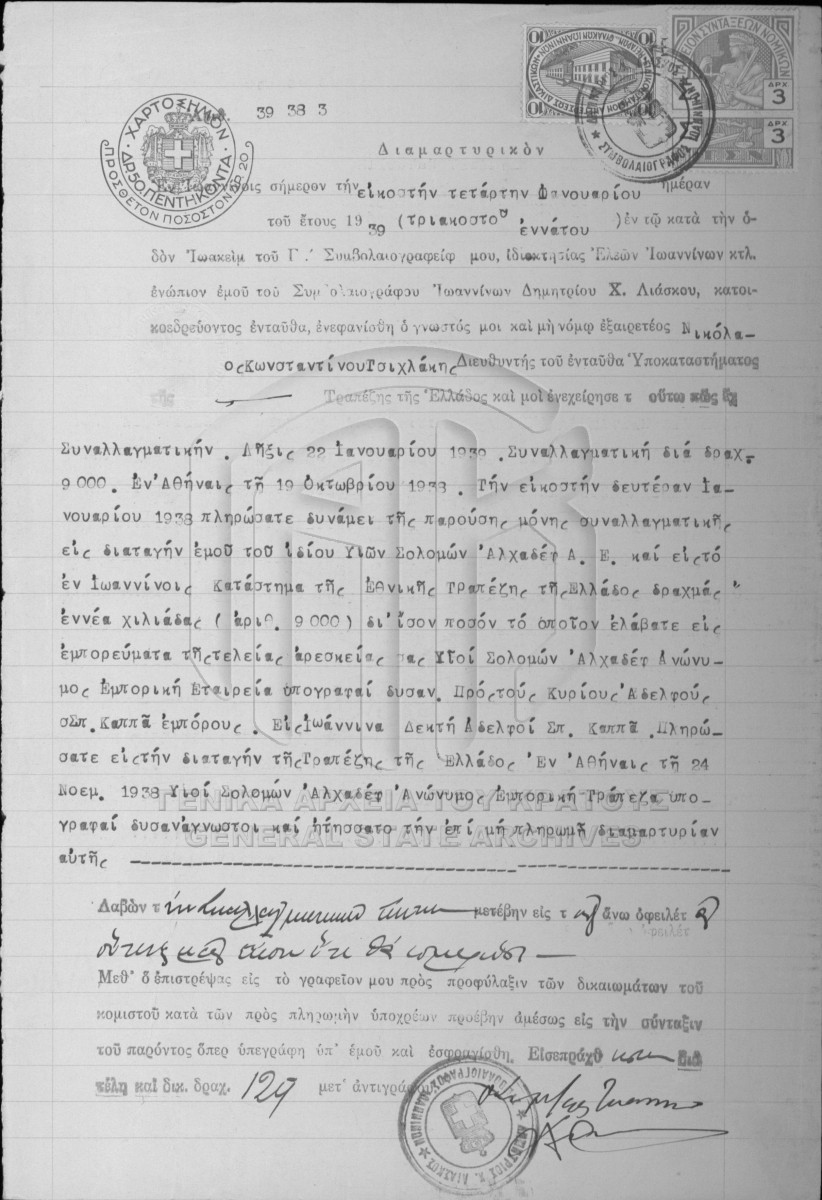 ΧΑΡΤΟΣΗΜΟΝ
ΔΡ50ΠΕΝΤΗΚΟΝΤΑ
ΠΡΟΣΘΕΤΟΝ ΠΟΣΟΣΤΟΝ 20
39 38 3
ΤΑΜΕΙΟΝ ΣΥΝΤΑΞΕΩΝ ΝΟΜΙΚΩΝ
ΔΡΧ 3
ΔΡΧ 3
10 10
Διαμαρτυρικὸν
σήμερον τὴν εἰκοστὴν τετάρτην Ιανουαρίου ἡμέραν
τοῦ ἔτους 19 39 (τριακοστοῦ ἐννάτου ) ἐν τῷ κατὰ τὴν ὁ-
δὸν Ἰωακεὶμ τοῦ Γ.′ Συμβολαιογραφείῳ μου, ἰδιοκτησίας Ἐλεῶν Ἰωαννίνων κτλ.
ἐνώπιον ἐμοῦ τοῦ Συμβολαιογράφου Ἰωαννίνων Δημητρίου Χ. Λιάσκου, κατοι-
κοεδρεύοντος ἐνταῦθα, ἐνεφανίσθη ὁ γνωστός μοι καὶ μὴ νόμῳ ἐξαιρετέος Νικόλα-
ος Κωνσταντίνου Τσιχλάκης Διευθυντὴς τοῦ ἐνταῦθα Ὑποκαταστήματος
τῆς — Τραπέζης τῆς Ἑλλάδος καί μοι ἐνεχείρησε τ οὕτω πῶς ἔχ
Συναλλαγματικήν . Λῆξις 22 Ιανουαρίου 1939 . Συναλλαγματική διά δραχ.
9 000 . Εν Ἀθήναις τῇ 19 Οκτωβρίου 1938 . Τήν εἰκοστήν δευτέραν Ια-
νουαρίου 1938 πληρώσατε δυνάμει τῆς παρούσης μόνης συναλλαγματικῆς
εἰς διαταγήν ἐμοῦ τοῦ ἰδίου Υἱῶν Σολομών Ἀλχαδέφ Α. Ε. καί εἰς τό
ἐν Ιωαννίνοις Κατάστημα τῆς Ἐθνικῆς Τραπέζης τῆς Ελλάδος δραχμάς
ἐννέα χιλιάδας ( ἀριθ. 9 000 ) δι' ἴσον ποσόν τό ὁποῖον ἐλάβατε εἰς
ἐμπορεύματα τῆς τελείας ἀρεσκείας σας Υἱοί Σολομών Ἀλχαδέφ Ανώνυ-
μος Εμπορική Εταιρεία ὑπογραφαί δυσαν. Πρός τούς Κυρίους Ἀδελφούς
Σπ. Καππᾶ ἐμπόρους . Εἰς Ἰωάννινα Δεκτή Ἀδελφοί Σπ. Καππᾶ . Πληρώ-
σατε εἰς τήν διαταγήν τῆς Τραπέζης τῆς Ελλάδος Ἐν Ἀθήναις τῇ 24
Νοεμ. 1938 Υἱοί Σολομών Ἀλχαδέφ Ἀνώνυμος Εμπορική Τράπεζα ὑπο-
γραφαί δυσανάγνωστοι καί ᾐτήσσατο τήν ἐπί μή πληρωμῇ διαμαρτυρίαν
αὐτῆς
ΓΕΝΙΚΑ ΑΡΧΕΙΑ ΤΟΥ ΚΡΑΤΟΥΣ
GENERAL STATE ARCHIVES
Λαβὼν τ μετέβην εἰς τ ἄνω ὀφειλέτ
Μεθ' ὃ ἐπιστρέψας εἰς τὸ γραφεῖον μου πρὸς προφύλαξιν τῶν δικαιωμάτων τοῦ
κομιστοῦ κατὰ τῶν πρὸς πληρωμὴν ὑποχρέων προέβην ἀμέσως εἰς τὴν σύνταξιν
τοῦ παρόντος ὅπερ ὑπεγράφη ὑπ' ἐμοῦ καὶ ἐσφραγίσθη. Εἰσεπράχθ διὰ
τέλη καὶ δικ. δραχ. 129 μετ' ἀντιγράφου
ΔΗΜΗΤΡΙΟΣ Χ. ΛΙΑΣΚΟΣ